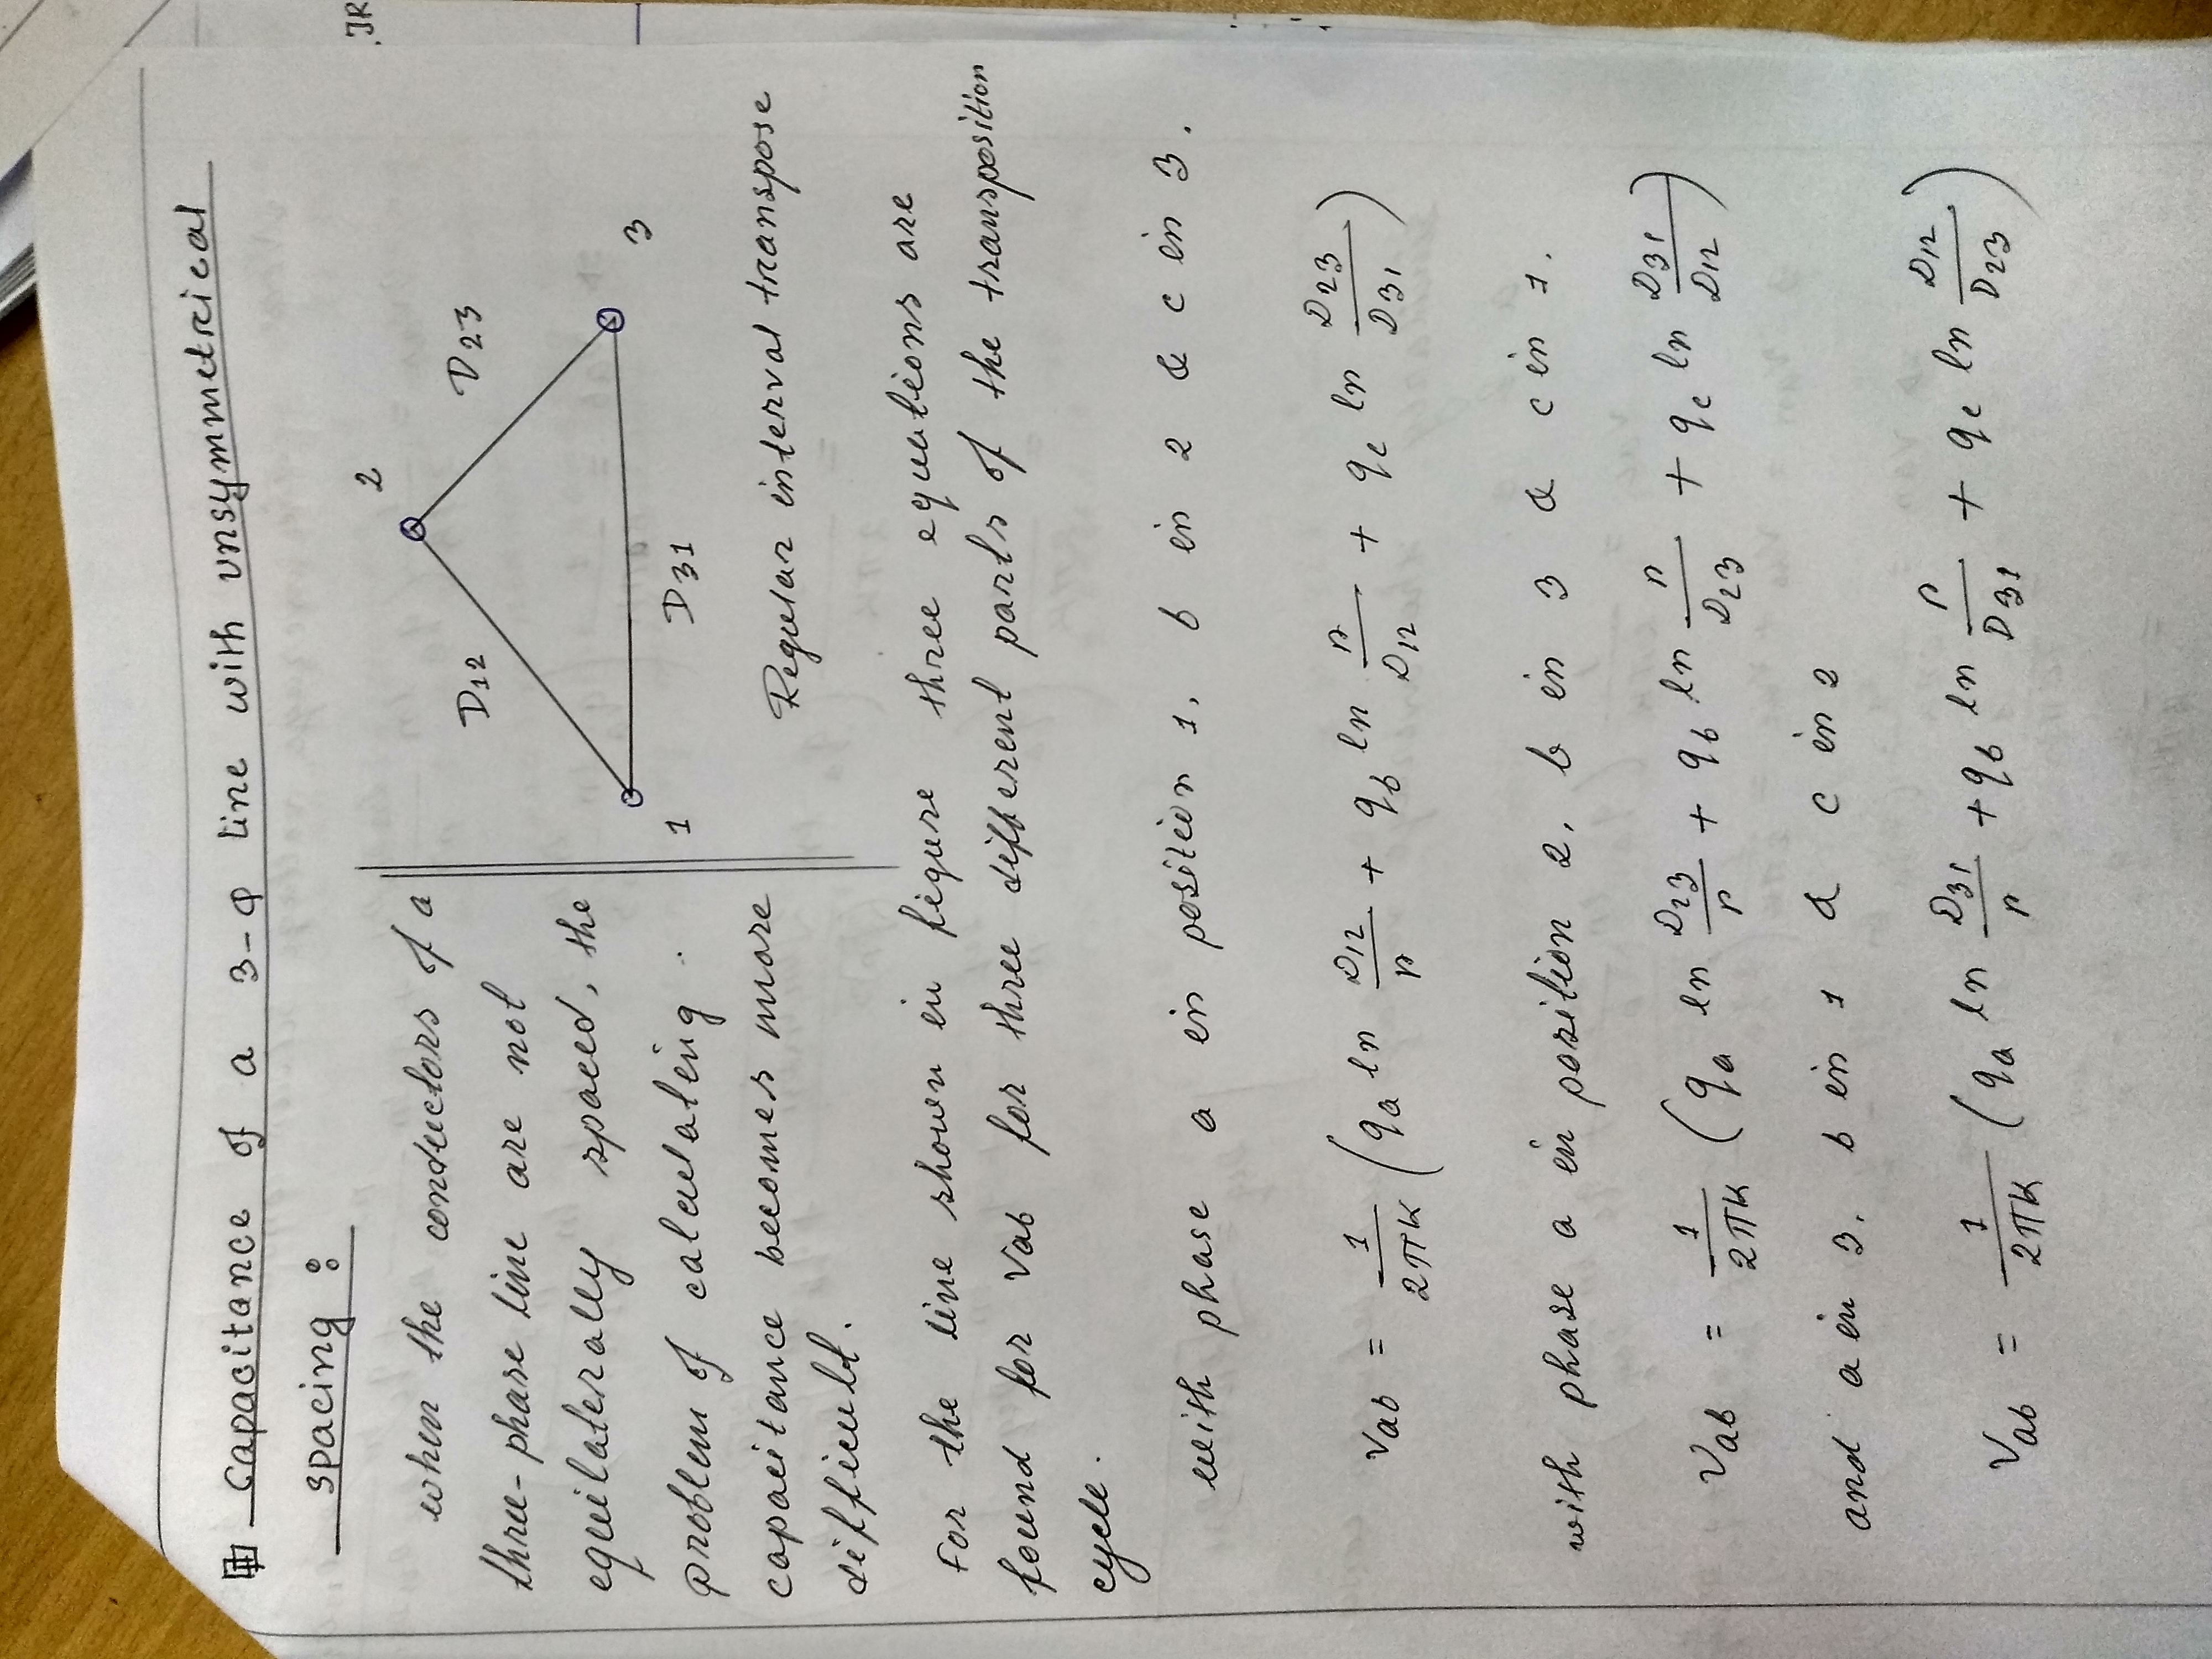 Capacitance of a 3-φ line with unsymmetrical
spacing :
when the conductors of a
three-phase line are not
equilaterally spaced, the
problem of calculating
capacitance becomes more
difficult.
2
D12
D23
1
D31
3
Regular interval transpose
For the line shown in figure three equations are
found for Vab for three different parts of the transposition
cycle.
with phase a in position 1, b in 2 & c in 3.
Vab = 1/2πK (qa ln D12/r + qb ln r/D12 + qc ln D23/D31)
with phase a in position 2, b in 3 & c in 1.
Vab = 1/2πK (qa ln D23/r + qb ln r/D23 + qc ln D31/D12)
and a in 3, b in 1 & c in 2
Vab = 1/2πK (qa ln D31/r + qb ln r/D31 + qc ln D12/D23)